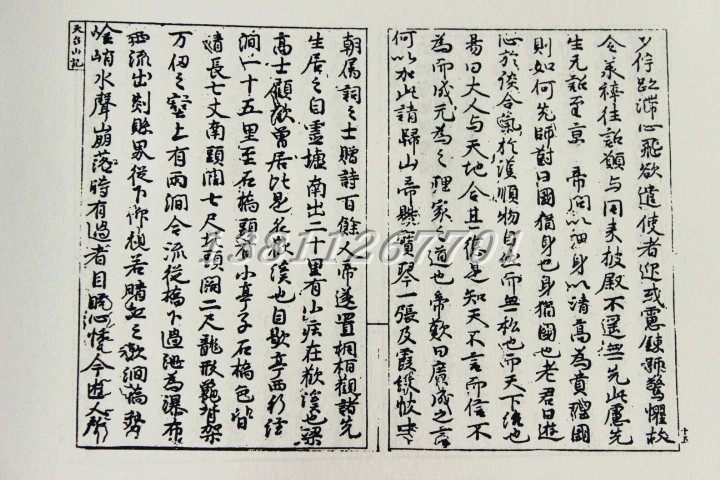 夕佇滯心飛欲遣使者迎或慮鍊師驚懼故
令往詔願与同来披不遥無先此慮先
生元詔至京 帝問以細身以清高為貴理國
則如何先師對曰國猶身也身猶國也老君曰遊
心於淡合氣於漠順物自然而無私也而天下理也
易曰大人与天地合其德是知天不言而信不
為而成无為之理家之道也帝歎曰廣成之言
何以加此請歸山帝與寶琴一張及霞綵帔
十五
朝屬詞之士贈詩百餘人帝遂置桐栢觀請先
生居之自靈墟南出二十里有山在歡溪之梁
高士顧歡曾居此是也自歇亭西行經
澗一十五里至石橋頭有小亭子石橋色皆
清長七丈南頭闊七尺北頭闊二尺龍形龜背架
万仞之壑上有兩澗合流從橋下過泄為瀑布
西流出剡縣界從下仰視若晴虹之飲澗橋勢
峭水聲崩落時有過者目眩心悸今遊人所
天台山記
13811267701